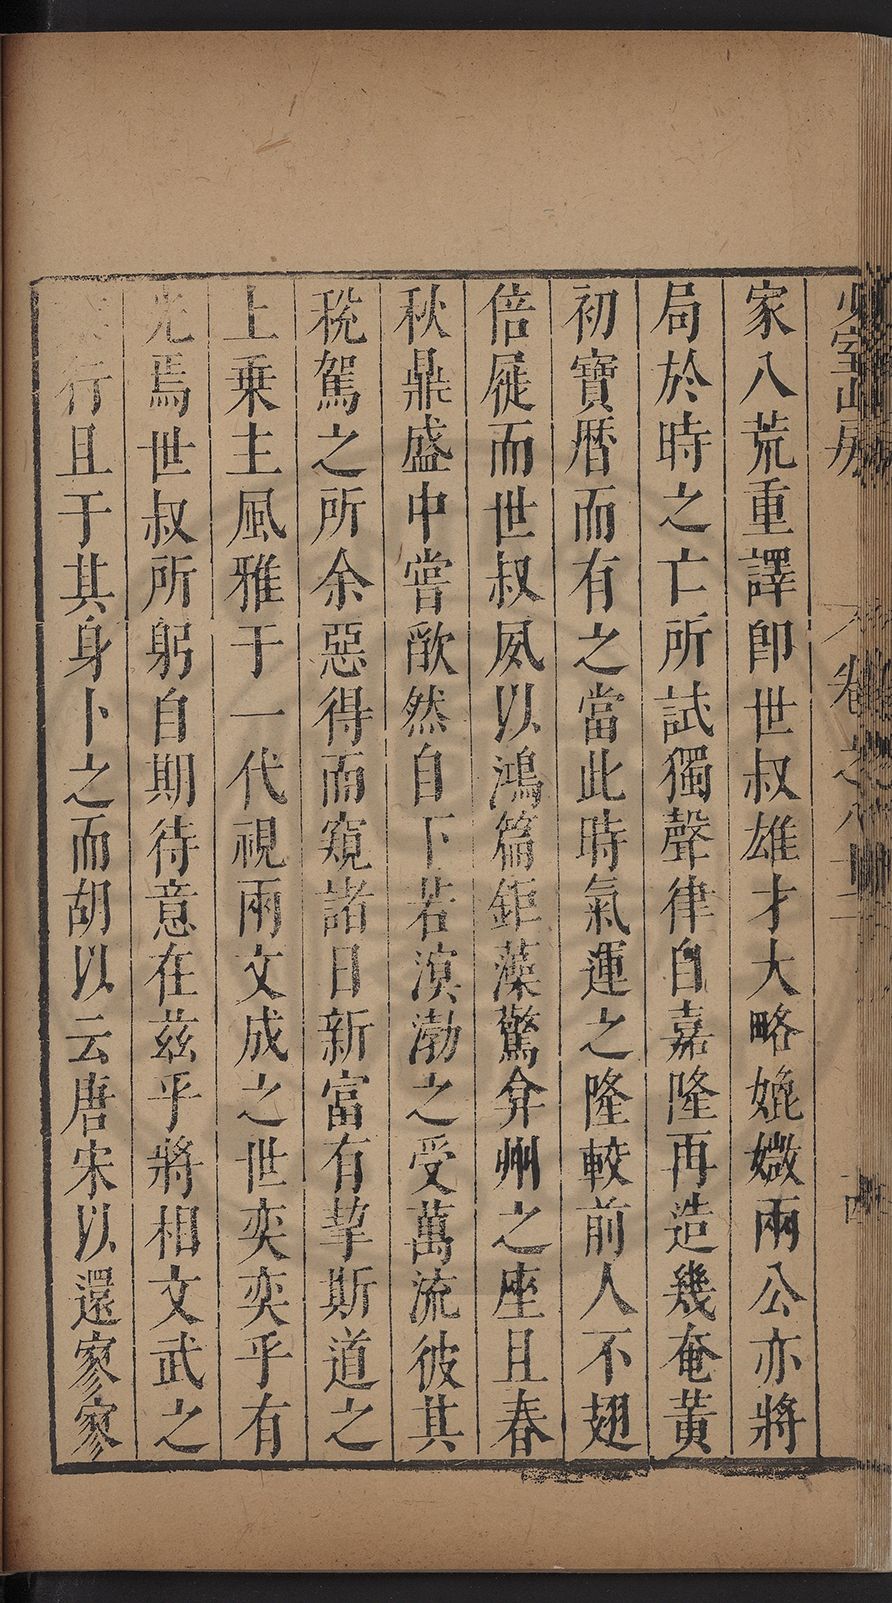 少室山房
卷之八十二
四
家八荒重譯卽世叔雄才大略媲媺兩公亦將
局於時之亡所試獨聲律自嘉隆再造幾奄黃
初寶曆而有之當此時氣運之隆較前人不翅
倍屣而世叔夙以鴻篇鉅藻驚弇州之座且春
秋鼎盛中嘗欿然自下若溟渤之受萬流彼其
稅駕之所余惡得而窺諸日新富有挈斯道之
上乘主風雅于一代視兩文成之世奕奕乎有
光焉世叔所躬自期待意在茲乎將相文武之
行且于其身卜之而胡以云唐宋以還寥寥